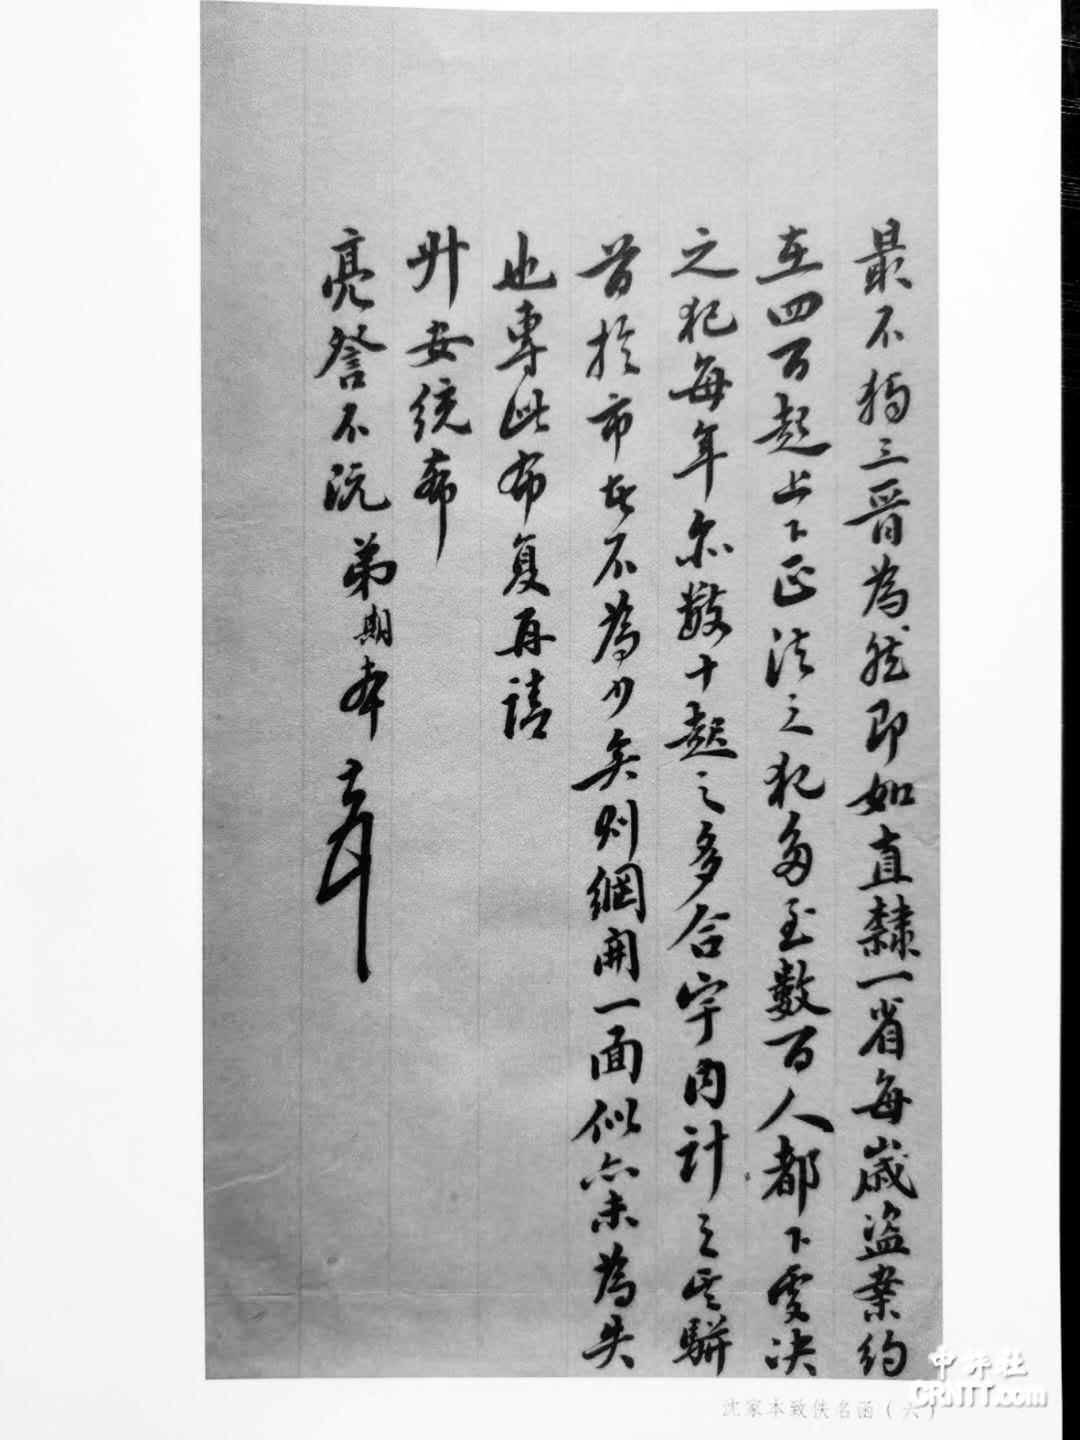 最不獨三晉為然即如直隸一省每歲盜案約
在四百起上下正法之犯多至數百人都下處決
之犯每年亦數十起之多合宇內計之其駢
首於市者不為少矣則網開一面似亦未為失
也專此布复再請
升安統希
亮詧不沅 弟期本頓
沈家本致佚名函（六）
中評社
CRNTT.com